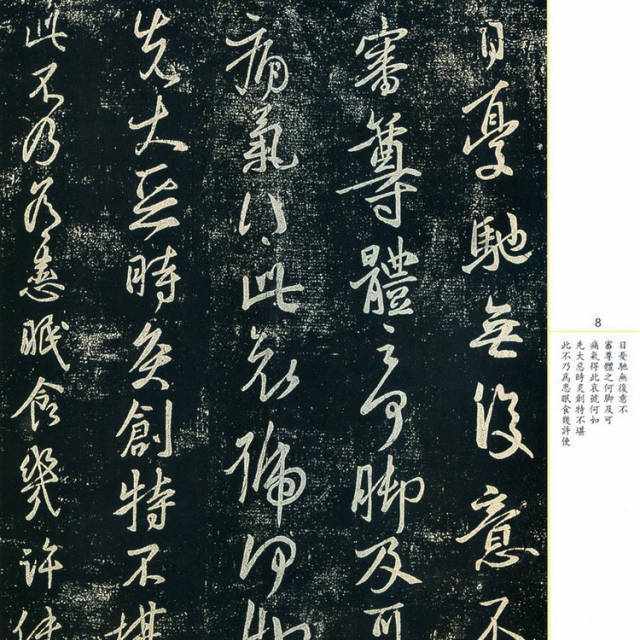 日憂馳無復意不
審尊體之何脚及可
痛氣得此哀號何如
先大惡時灸創特不堪
此不乃為患眠食幾許使
8
日憂馳無復意不
審尊體之何脚及可
痛氣得此哀號何如
先大忌時灸創特不堪
此不乃爲悉眠食幾許使